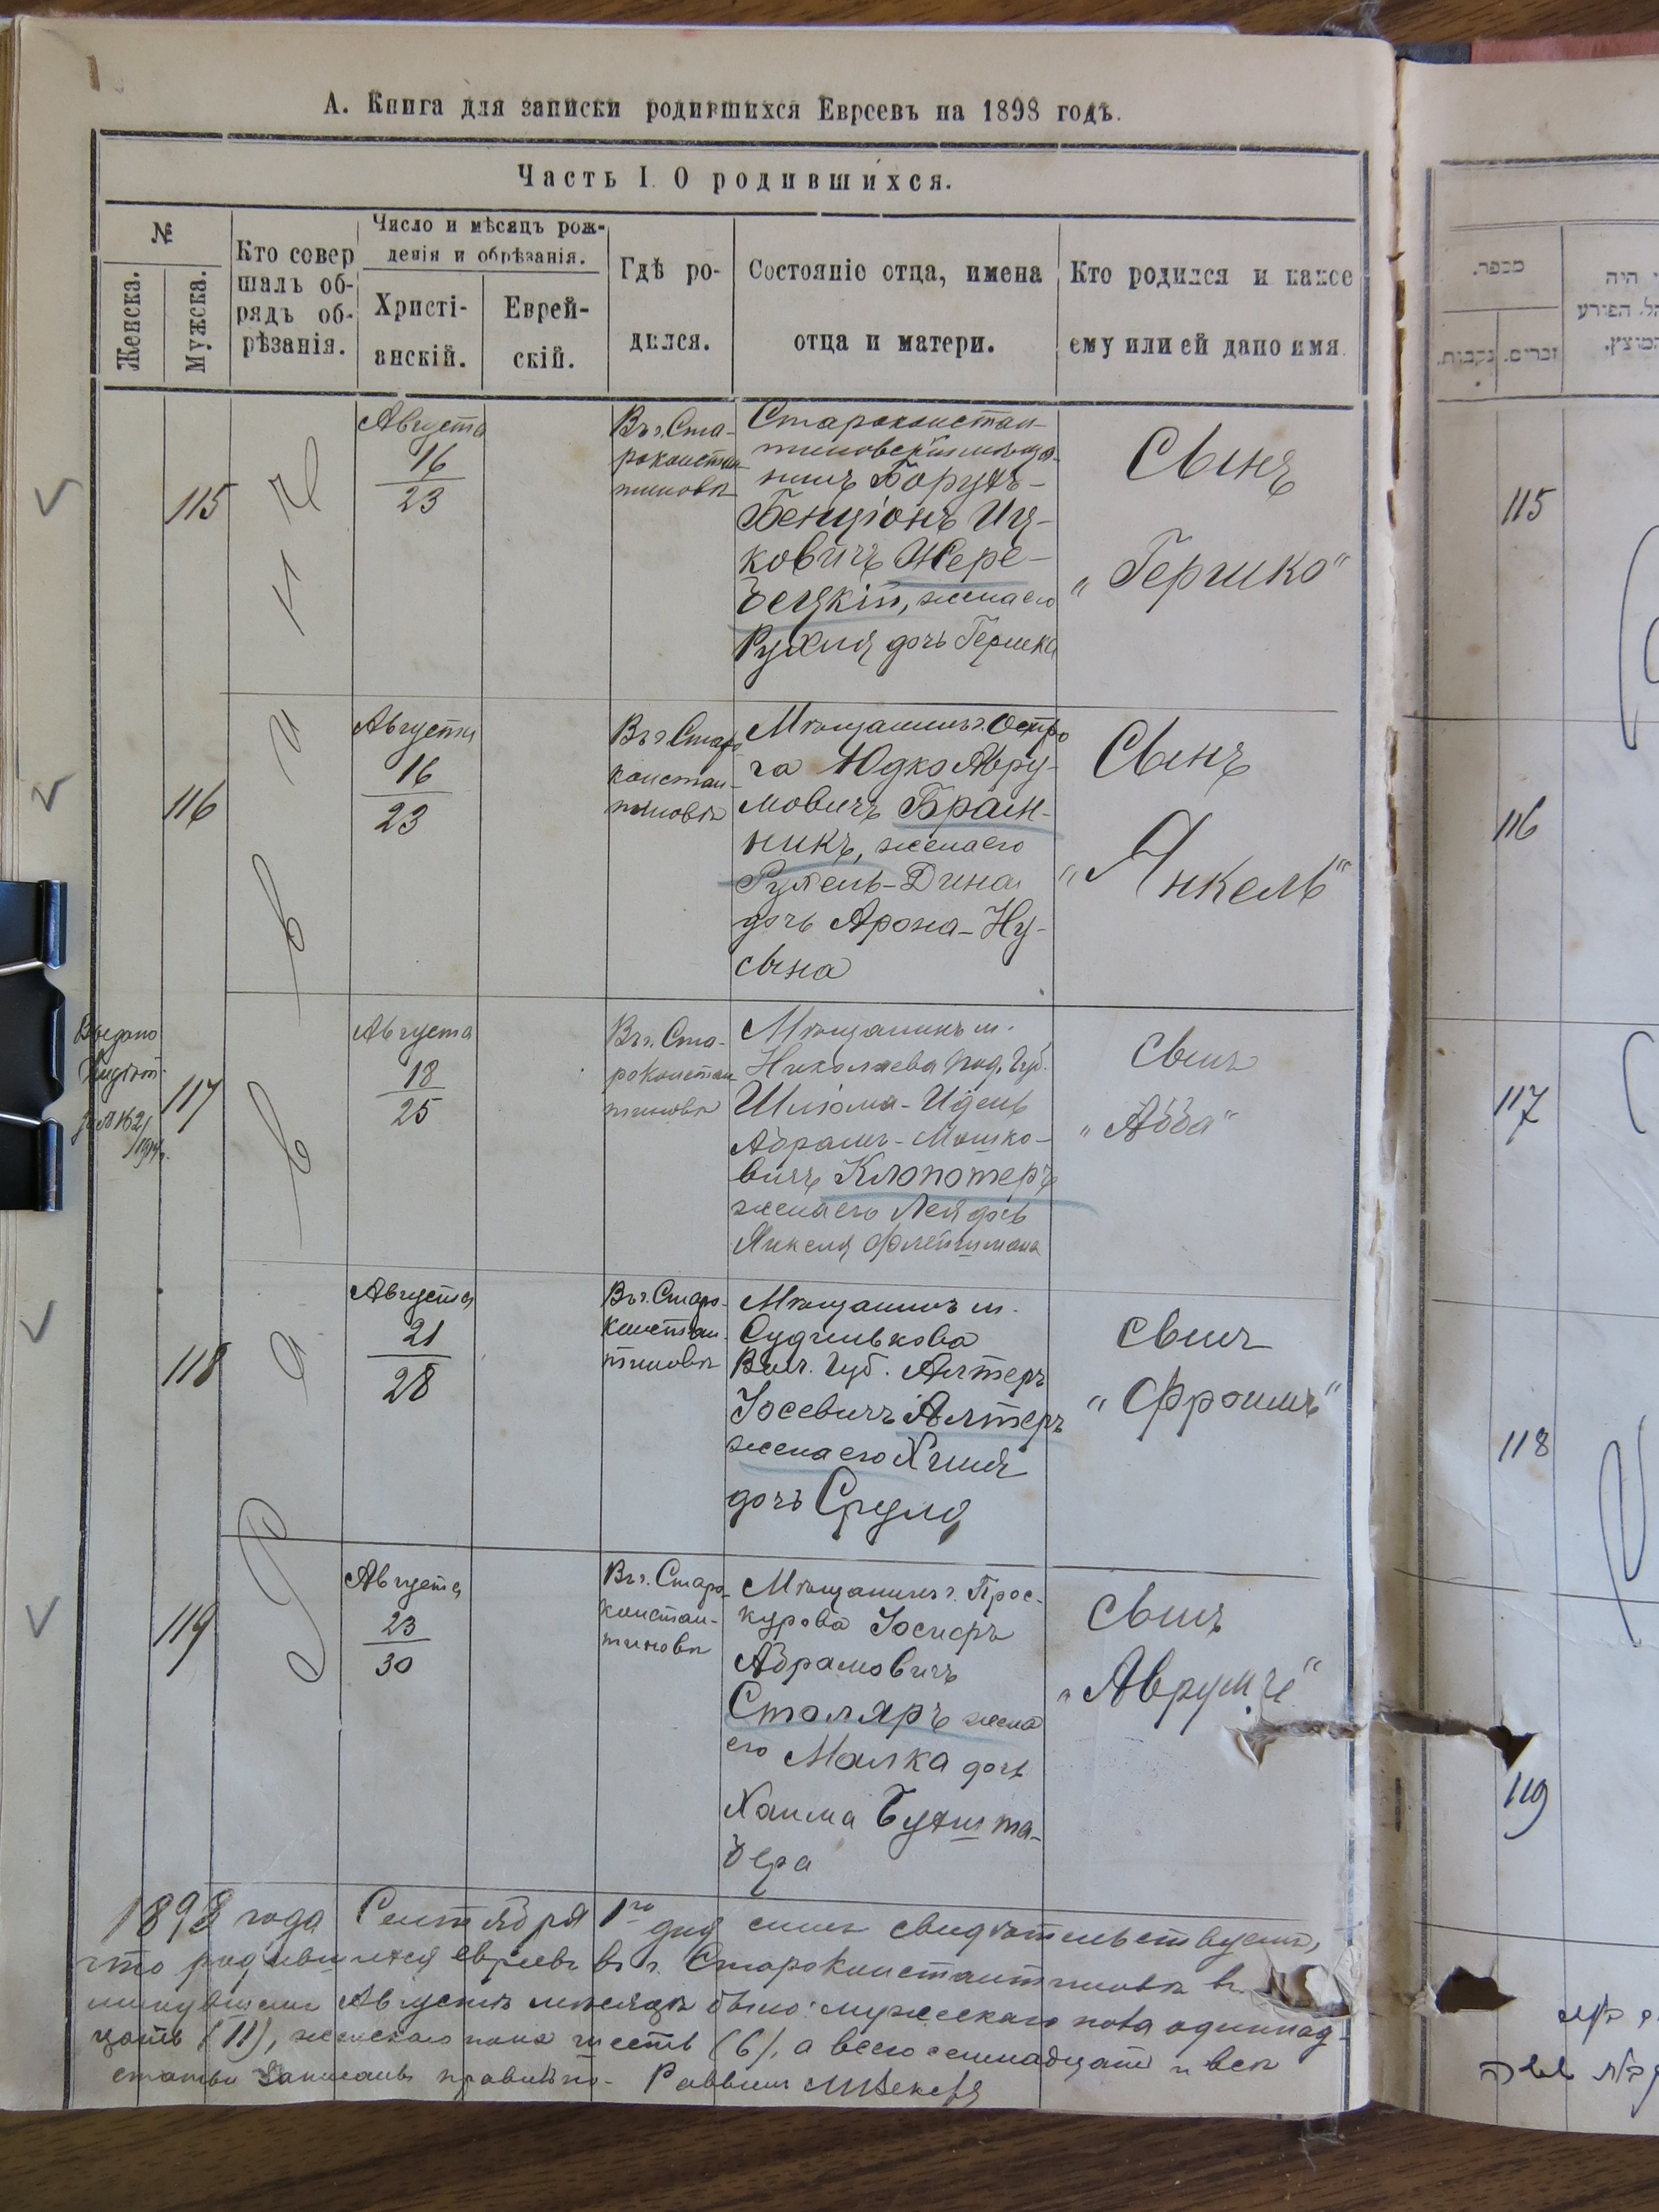 А. Книга для записки родившихся Евреевъ на 1898 годъ.
Часть I. О родившихся.
№
Женска.
Мужска.
Кто совер
шалъ об-
рядъ об-
рѣзанія.
Число и мѣсяцъ рож-
денія и обрѣзанія.
Христі-
анскій.
Еврей-
скій.
Гдѣ ро-
дился.
Состояніе отца, имена
отца и матери.
Кто родился и какое
ему или ей дано имя.
115
Августа
16
23
Въ г. Ста-
роконстан-
тиновѣ
Староконстан-
тиновскій мѣща-
нинъ Борухъ-
Бенціонъ Иц-
ковичъ Жере-
бецкій, жена его
Рухля дочь Гершка
Сынъ
„Гершко"
116
Августа
16
23
Въ г. Старо
констан-
тиновѣ
Мѣщанинъ г. Остро
га Юдко Авру-
мовичъ Брай-
никъ, жена его
Рухель-Дина
дочь Арона-Ну-
сына
Сынъ
„Янкель"
Выдано
117
Августа
18
25
Въ г. Ста-
роконстан
тиновѣ
Мѣщанинъ м.
Николаева Под. Губ.
Шлiома-Идель
Абрамъ-Мошко-
вичъ Клопотеръ
жена его Лея дочь
Янкеля Флейшмана
сынъ
„Абба"
118
Августа
21
28
Въ г. Старо-
констан-
тиновѣ
Мѣщанинъ м.
Судилькова
Вол. Губ. Алтеръ
Іосевичъ Алтеръ
жена его Хиня
дочь Сруля
сынъ
„Фроимъ"
119
Августа
23
30
Въ г. Старо-
констан-
тиновѣ
Мѣщанинъ г. Прос-
курова Іосифъ
Абрамовичъ
Столяръ жена
его Малка дочь
Хаима Бухшта-
бера
сынъ
„Аврумъ"
1898 года Сентября 1го дня симъ свидѣтельствуемъ,
что родившихся евреевъ въ г. Староконстантиновѣ въ
минувшемъ Августѣ мѣсяцѣ было: мужескаго пола одиннад-
цать (11), женскаго пола шесть (6), а всего семнадцать и всѣ
статьи записаны правильно. Раввинъ
115
116
117
118
119